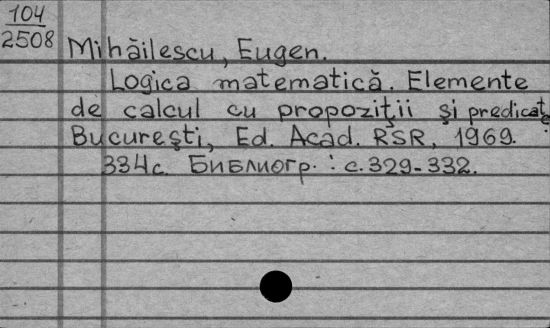 104
2508
Mihăilescu, Eugen.
Logica matematică. Elemente
de calcul cu propoziţii şi predicate
Bucureşti, Ed. Acad. RSR, 1969.
334c. Библиогр.: с.329-332.